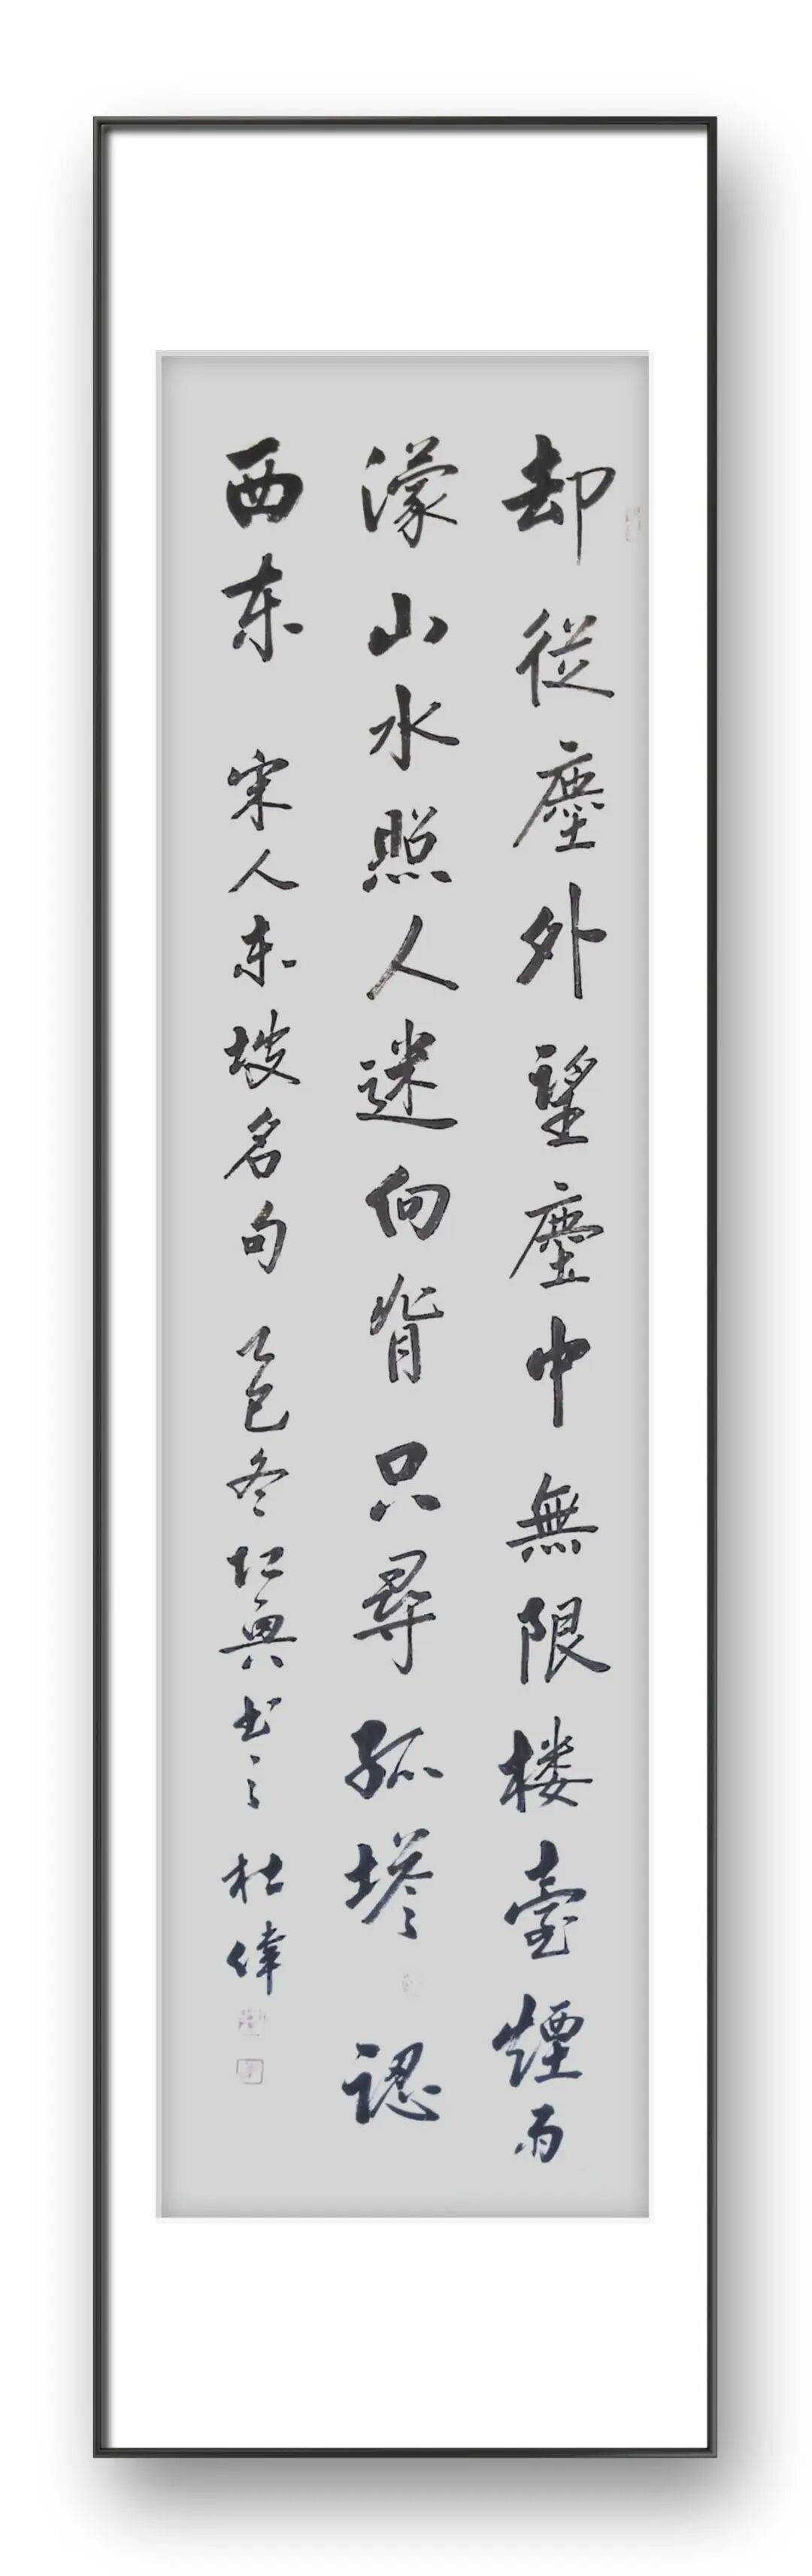 却從塵外望塵中無限楼臺煙雨
濛山水照人迷向背只尋孤塔認
西东 宋人东坡名句 乙巳冬 仁興书之 杜偉